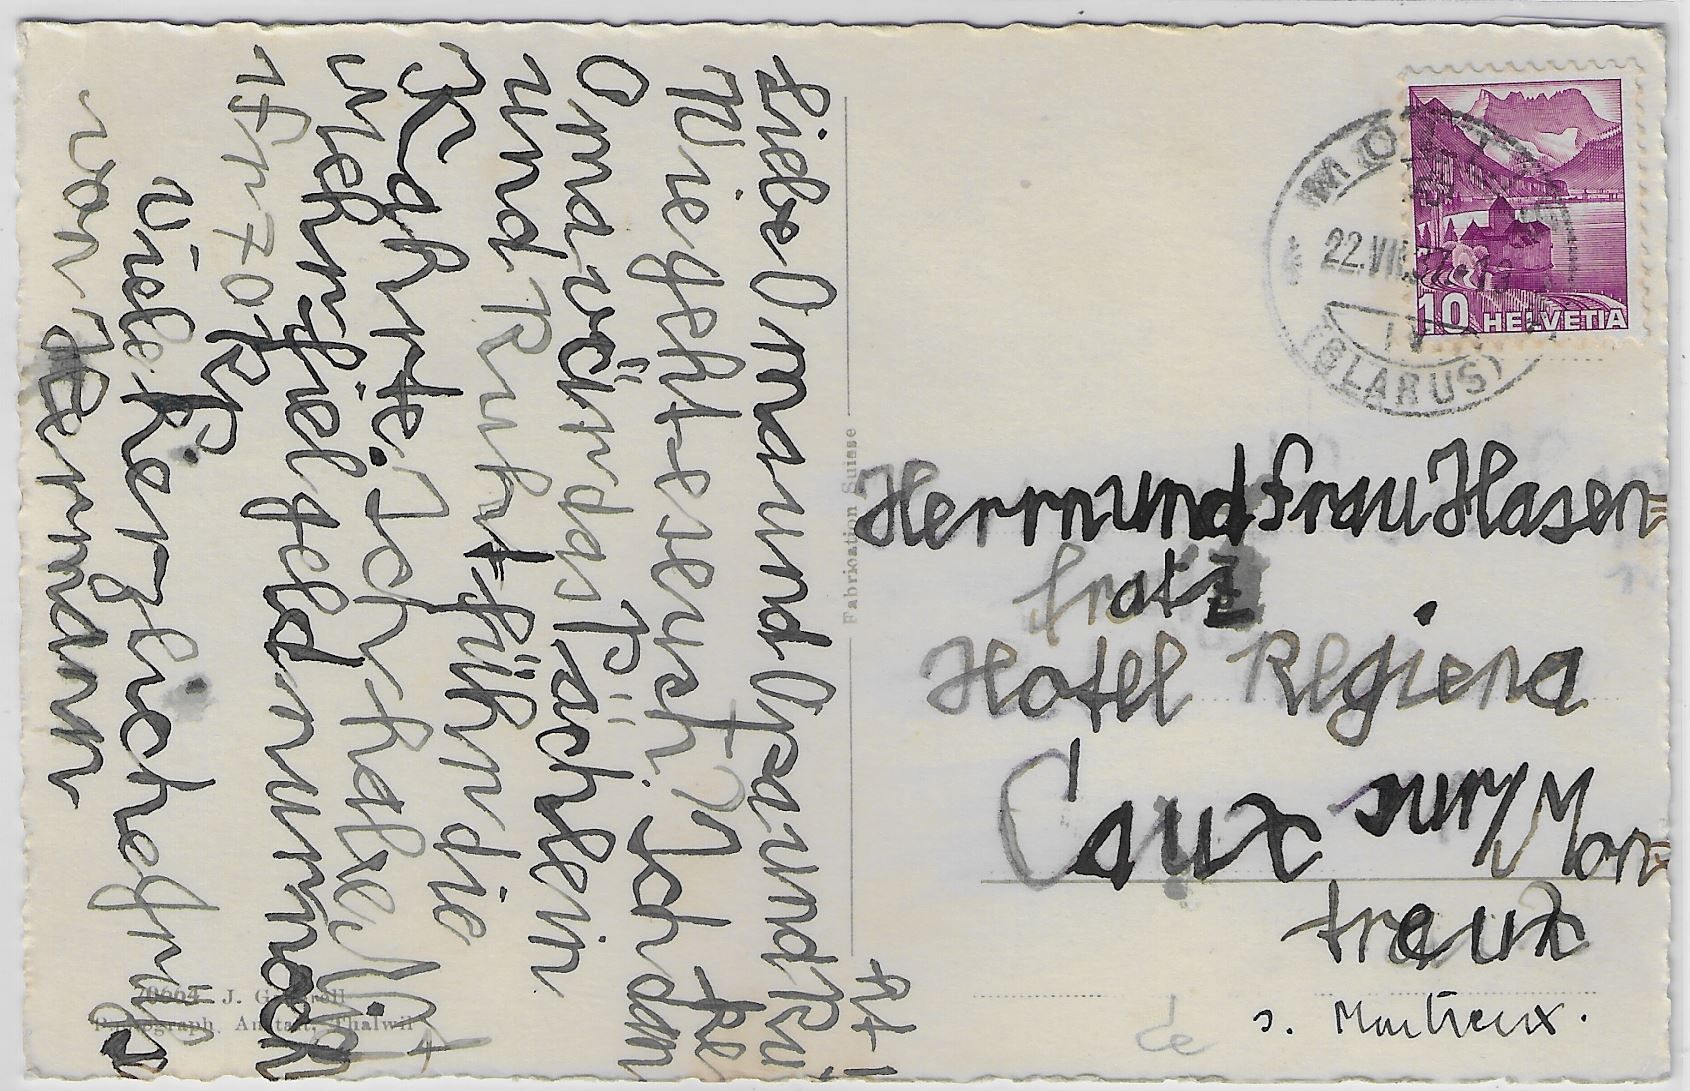 Liebe Oma und Opa und Ru
th!
Wie geht es euch? Ich dan
ke
Oma vür das Täschlein
und Ruht führ die
Kahrte. Ich habe Nicht
mehr fiel geld nur noch
1 fr 70 R
viele Herzliche grüss
von Hermann
Fabrication Suisse
J. Gaberell
Photograph. Anstalt, Thalwil
22.VII
(GLARUS)
10 HELVETIA
Herrn und Frau Hasen=
fratz
Hotel Regiena
Caux sur/Mon=
traux
s. Montreux.